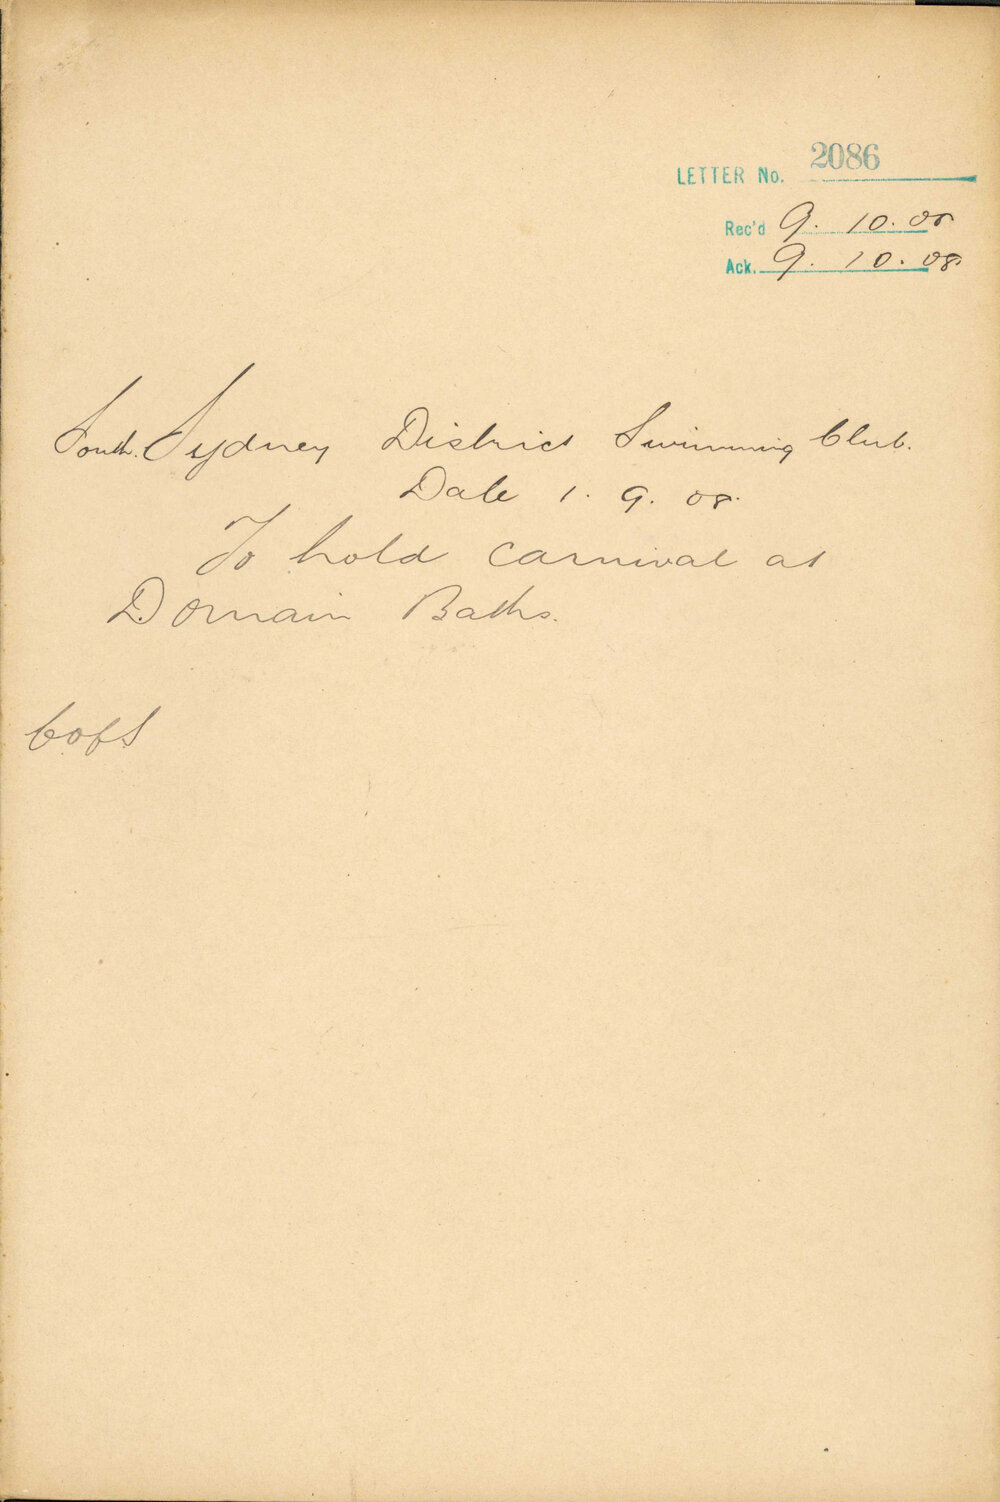 LETTER No. 2086
Rec'd 9. 10. 08
Ack. 9. 10. 08.
South. Sydney District Swimming Club.
Date 1. 9. 08.
To hold carnival at
Domain Baths.
C of S